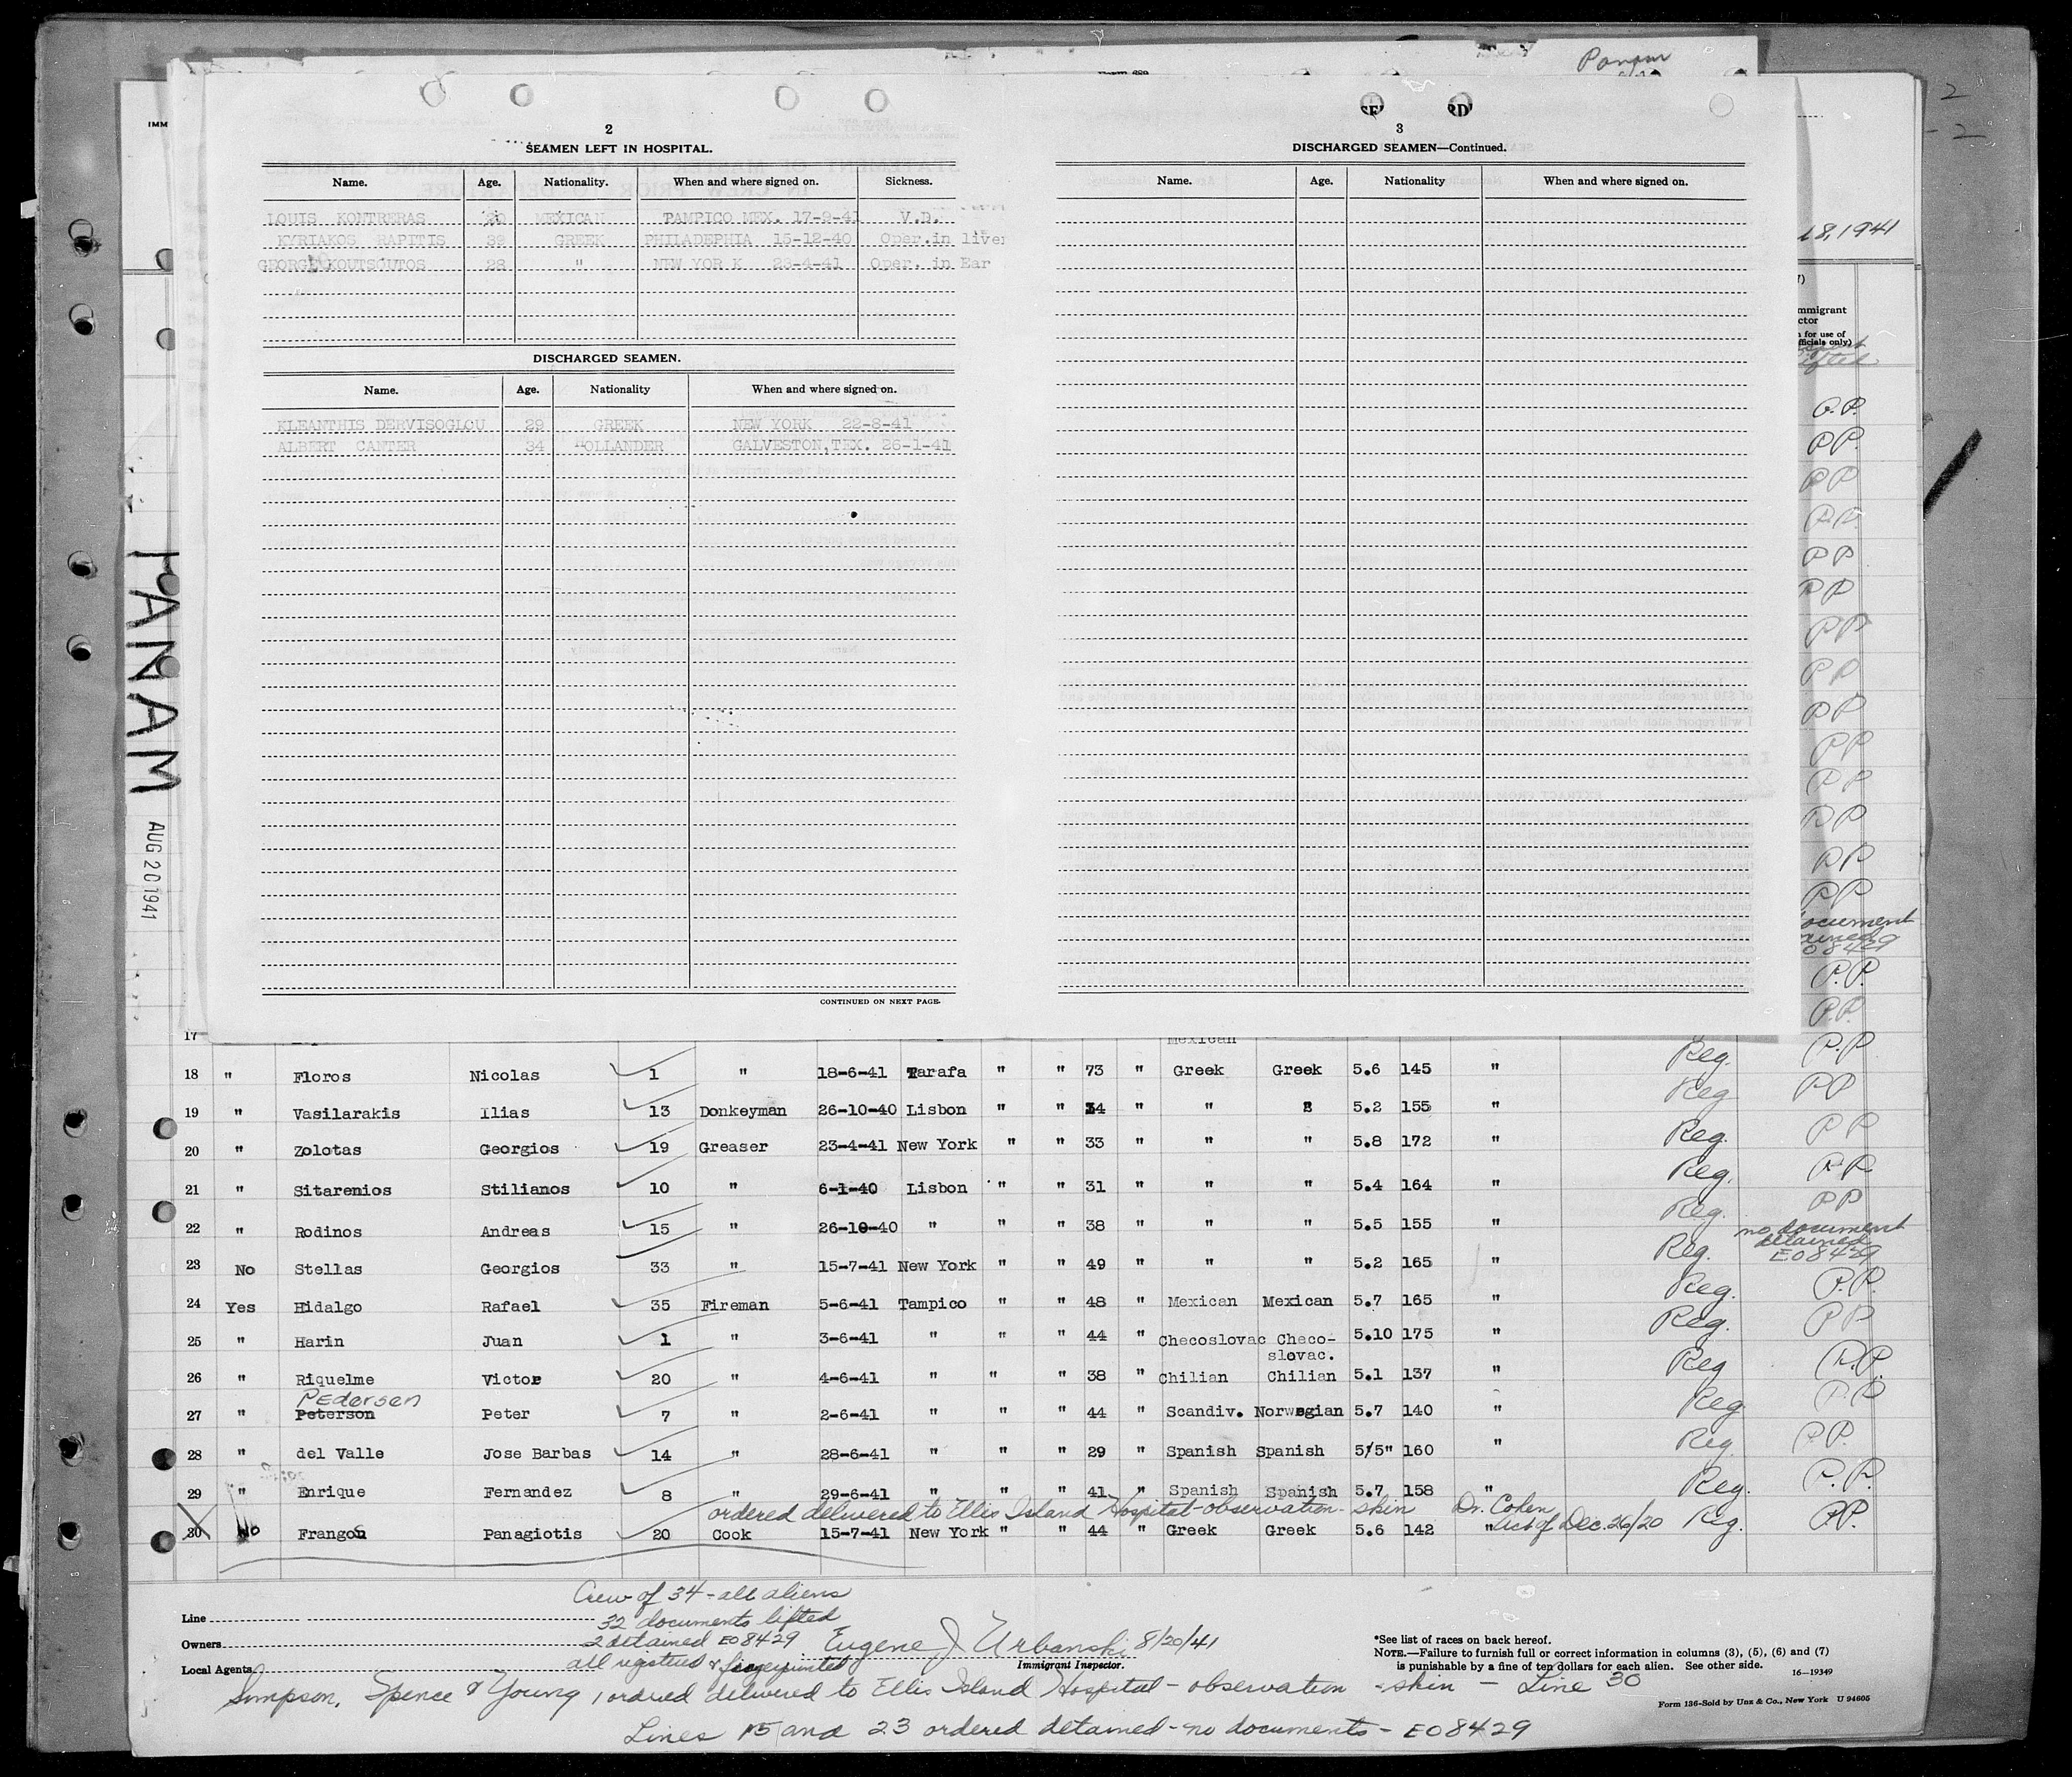 Panam
2
SEAMEN LEFT IN HOSPITAL.
Name. Age. Nationality. When and where signed on. Sickness.
LOUIS KONTRERAS MEXICAN TAMPICO MEX. 17-9-41 V.D.
KYRIAKOS RAPITIS 39 GREEK PHILADEPHIA 15-12-40 Oper.in liver
GEORGE KOUTSOUTOS 28 " NEW YOR K 23-4-41 Oper. in Ear
DISCHARGED SEAMEN.
Name. Age. Nationality When and where signed on.
KLEANTHIS DERVISOGLOU 29 GREEK NEW YORK 22-8-41
ALBERT CANTER 34 HOLLANDER GALVESTON,TEX. 26-1-41
CONTINUED ON NEXT PAGE.
3
DISCHARGED SEAMEN—Continued.
Name. Age. Nationality When and where signed on.
IMM
PANAM
AUG 20 1941
18,1941
mmigrant
ctor
for use of
fficials only)
lifted
P.P.
PP.
PP
PP.
PP
PP
PP
PP
PP
PP
PP
PP
PP
PP
ocument
ained
08429
P.P.
P.P.
17 Mexican P.P
18 " Floros Nicolas 1 " 18-6-41 Tarafa " " 73 " Greek Greek 5.6 145 " Reg. PP
19 " Vasilarakis Ilias 13 Donkeyman 26-10-40 Lisbon " " 34 " " " 5.2 155 " Reg PP
20 " Zolotas Georgios 19 Greaser 23-4-41 New York " " 33 " " " 5.8 172 " Reg. PP
21 " Sitarenios Stilianos 10 " 6-1-40 Lisbon " " 31 " " " 5.4 164 " Reg. PP
22 " Rodinos Andreas 15 " 26-10-40 " " " 38 " " " 5.5 155 " Reg.
no document
detained
EO8429
23 No Stellas Georgios 33 " 15-7-41 New York " " 49 " " " 5.2 165 " Reg.
24 Yes Hidalgo Rafael 35 Fireman 5-6-41 Tampico " " 48 " Mexican Mexican 5.7 165 " Reg. P.P.
25 " Harin Juan 1 " 3-6-41 " " " 44 " Checoslovac Checo-slovac. 5.10 175 " Reg. PP
26 " Riquelme Victor 20 " 4-6-41 " " " 38 " Chilian Chilian 5.1 137 " Reg P.P.
Pedersen
27 " Peterson Peter 7 " 2-6-41 " " " 44 " Scandiv. Norwegian 5.7 140 " Reg P.P
28 " del Valle Jose Barbas 14 " 28-6-41 " " " 29 " Spanish Spanish 5/5" 160 " Reg. P.P.
29 " Enrique Fernandez 8 " 29-6-41 " " " 41 " Spanish Spanish 5.7 158 " Reg. P.P.
ordered delivered to Ellis Island Hospital-observation- skin Dr. Cohen
30 No Frangos Panagiotis 20 Cook 15-7-41 New York " " 44 " Greek Greek 5.6 142 " Act of Dec. 26/20 Reg. P.P.
Crew of 34 - all aliens
Line
32 documents lifted
Owners
2 detained EO8429
Eugene J Urbanski 8/20/41
Local Agents
all registered & fingerprinted
Immigrant Inspector.
*See list of races on back hereof.
NOTE.—Failure to furnish full or correct information in columns (3), (5), (6) and (7)
is punishable by a fine of ten dollars for each alien. See other side.
16—19349
Simpson, Spence & Young 1 ordered delivered to Ellis Island Hospital - observation - skin - Line 30
Form 136-Sold by Unz & Co., New York U 94605
Lines 15 and 23 ordered detained - no documents - EO8429